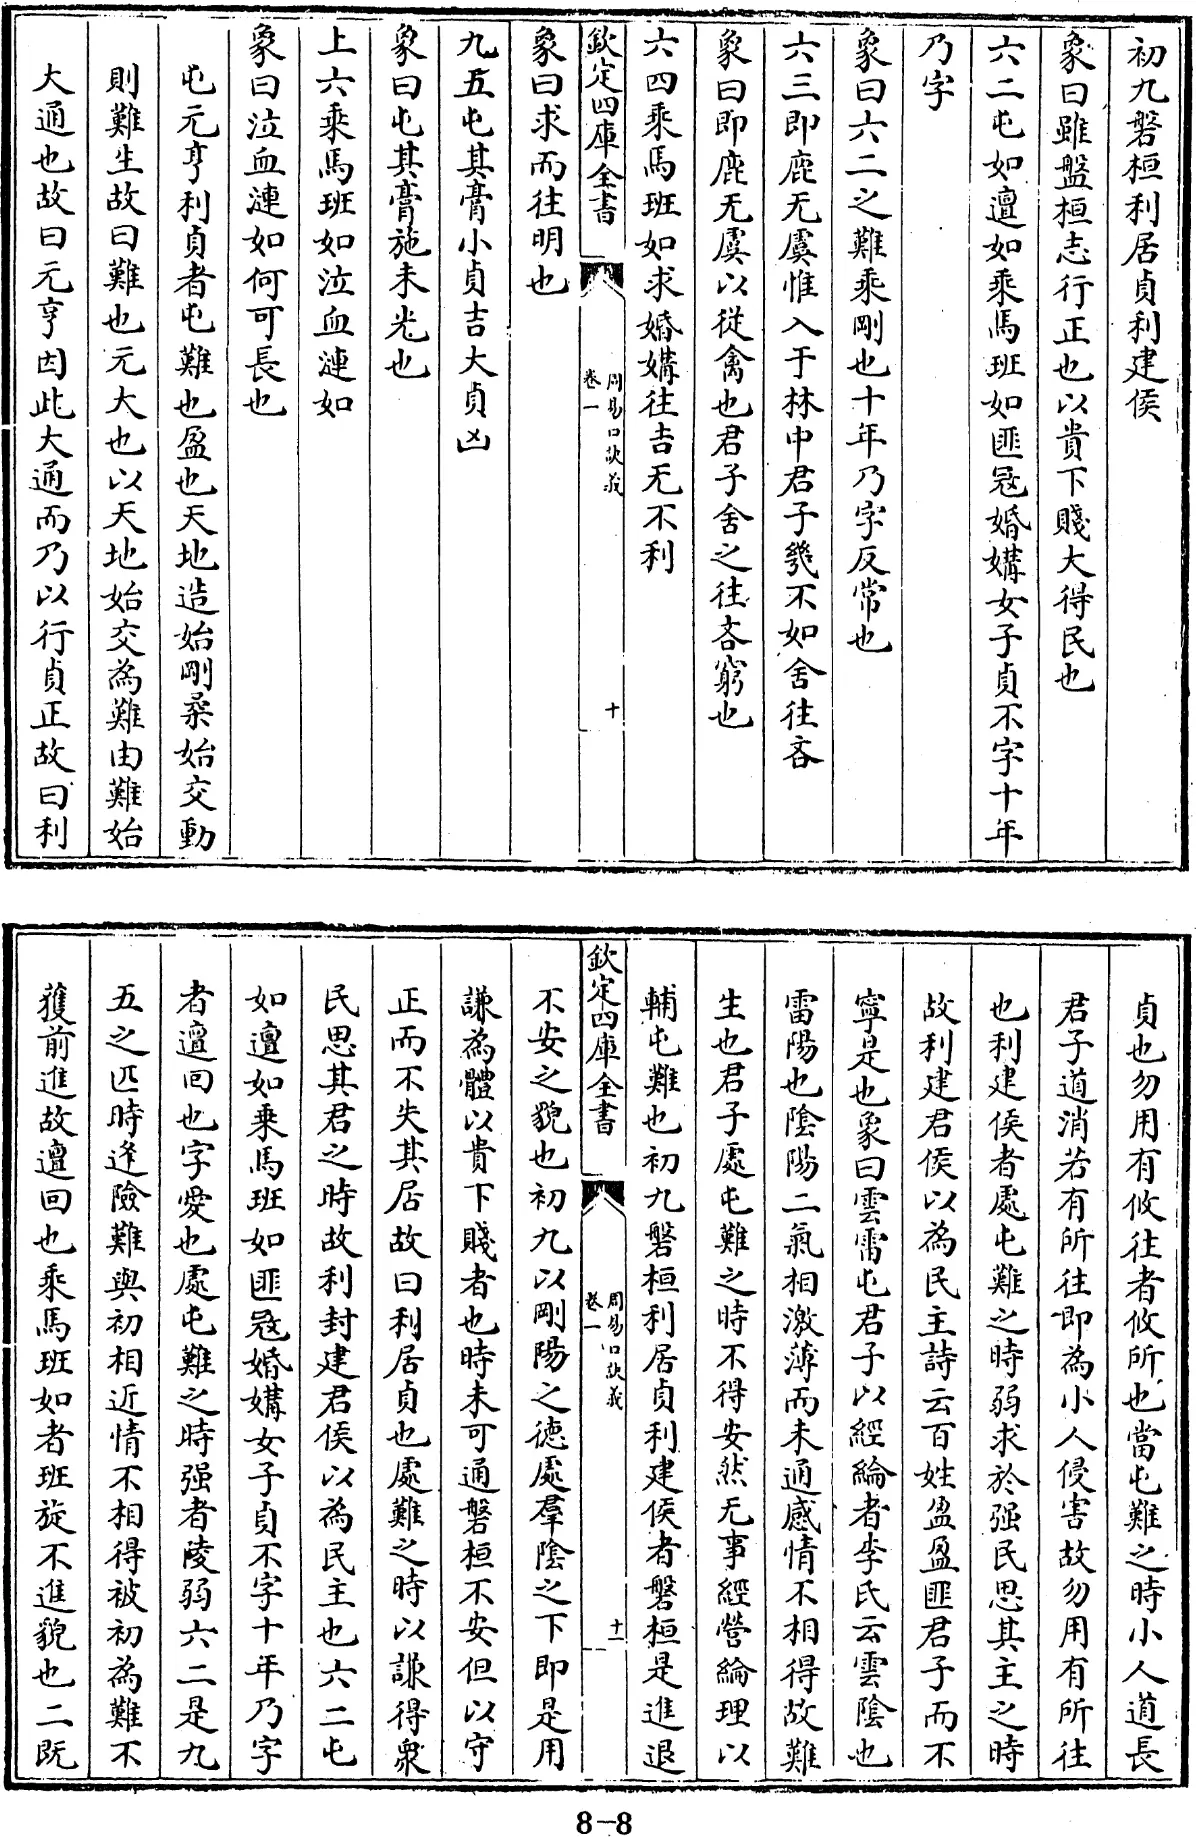 初九磐桓利居貞利建侯
象曰雖盤桓志行正也以貴下賤大得民也
六二屯如邅如乘馬班如匪寇婚媾女子貞不字十年
乃字
象曰六二之難乘剛也十年乃字反常也
六三即鹿无虞惟入于林中君子幾不如舍往吝
象曰即鹿无虞以從禽也君子舍之往吝窮也
六四乘馬班如求婚媾往吉无不利
欽定四庫全書
周易口訣義
卷一
十
象曰求而往明也
九五屯其膏小貞吉大貞凶
象曰屯其膏施未光也
上六乘馬班如泣血漣如
象曰泣血漣如何可長也
屯元亨利貞者屯難也盈也天地造始剛柔始交動
則難生故曰難也元大也以天地始交為難由難始
大通也故曰元亨因此大通而乃以行貞正故曰利
貞也勿用有攸往者攸所也當屯難之時小人道長
君子道消若有所往即為小人侵害故勿用有所往
也利建侯者處屯難之時弱求於强民思其主之時
故利建君侯以為民主詩云百姓盈盈匪君子而不
寧是也象曰雲雷屯君子以經綸者李氏云雲陰也
雷陽也陰陽二氣相激薄而未通感情不相得故難
生也君子處屯難之時不得安然无事經營綸理以
輔屯難也初九磐桓利居貞利建侯者磐桓是進退
欽定四庫全書
周易口訣義
卷一
十一
不安之貌也初九以剛陽之德處羣陰之下即是用
謙為體以貴下賤者也時未可通磐桓不安但以守
正而不失其居故曰利居貞也處難之時以謙得衆
民思其君之時故利封建君侯以為民主也六二屯
如邅如乘馬班如匪寇婚媾女子貞不字十年乃字
者邅回也字愛也處屯難之時强者陵弱六二是九
五之匹時逢險難與初相近情不相得被初為難不
獲前進故邅回也乘馬班如者班旋不進貌也二既
8-8